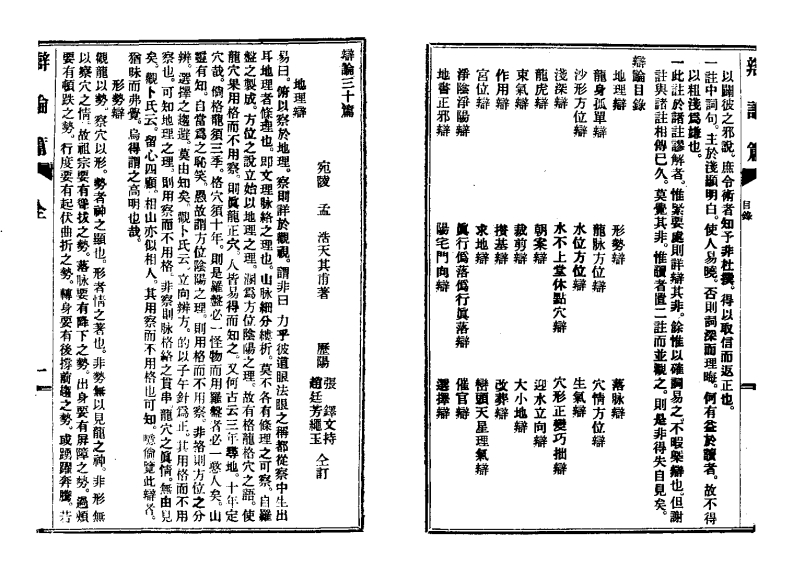 辯論篇 目錄
以闢彼之邪說。庶令術者知予非杜撰。得以取信而返正也。
一註中詞句。主於淺顯明白。使人易曉。否則詞深而理晦。何有益於讀者。故不得
以粗淺為謙也。
一此註於諸註謬解者。惟緊要處則詳辯其非。餘惟以確詞易之。不暇槩辯也。但謝
註與諸註相傳已久。莫覺其非。惟讀者置二註而並觀之。則是非得失自見矣。
辯論目錄
地理辯 形勢辯 落脉辯
龍身孤單辯 龍脉方位辯 穴情方位辯
沙形方位辯 水位方位辯 生氣辯
淺深辯 水不上堂休點穴辯 穴形正變巧拙辯
龍虎辯 朝案辯 迎水立向辯
束氣辯 裁剪辯 大小地辯
作用辯 撥基辯 改葬辯
宮位辯 求地辯 巒頭天星理氣辯
淨陰淨陽辯 眞行僞落僞行眞落辯 催官辯
地書正邪辯 陽宅門向辯 選擇辯
辯論三十篇
宛陵 孟 浩天其甫著 歷陽 張 鐸文持 趙廷芳繩玉 仝訂
地理辯
易曰。俯以察於地理。察則詳於觀視。謂非目力乎彼道眼法眼之稱都從察中生出
耳地理者條理也。即文理脉絡之理也。山脉細分縷折。莫不各有條理之可察。自羅
盤之製成。方位之說立始以地理之理。溷為方位陰陽之理。故有格龍格穴之語。使
龍穴果用格而不用察。則眞龍正穴。人皆易得而知之。又何古云三年尋地。十年定
穴哉。倘格龍須三季。格穴須十年。則是羅盤必一怪物而用羅盤者必一憨人矣。山
靈有知。自當為之恥笑。愚故謂方位陰陽之理。則用格而不用察。非格則方位之分
辨。選擇之趨避。莫由知矣。觀卜氏云。立向辨方。的以子午針為正。其用格而不用
察也。可知地理之理。則用察而不用格。非察則脉格絡之貫串。龍穴之眞情。無由見
矣。觀卜氏云。留心四顧。相山亦似相人。其用察而不用格也可知。噫倘覽此辯者。
猶昧而弗覺。烏得謂之高明也哉。
形勢辯
觀龍以勢。察穴以形。勢者神之顯也。形者情之著也。非勢無以見龍之神。非形無
以察穴之情。故祖宗要有聳拔之勢。落脉要有降下之勢。出身要有屏障之勢。過頰
要有頓跌之勢。行度要有起伏曲折之勢。轉身要有後撐前趨之勢。或踴躍奔騰。若
辯論篇 仝 一